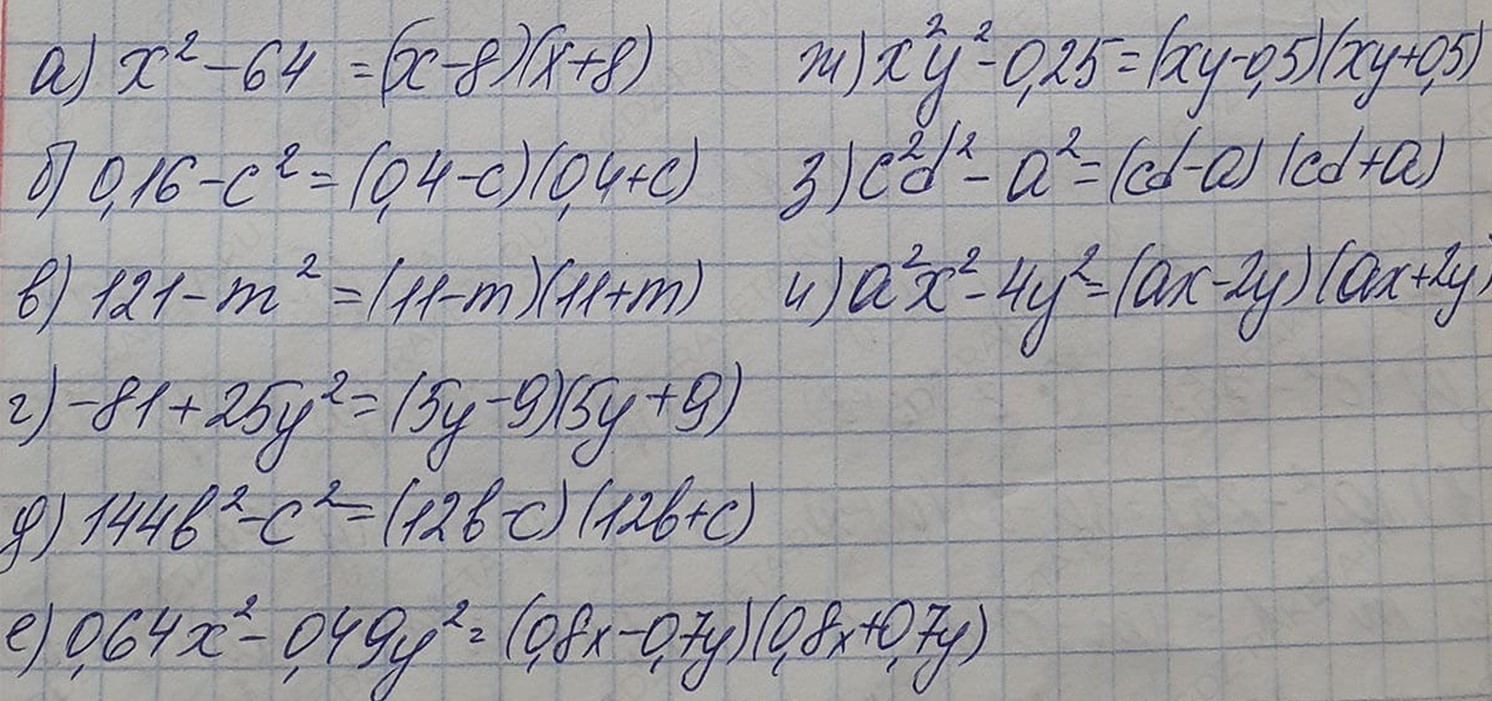 а) x² - 64 = (x-8)(x+8)
б) 0,16 - c² = (0,4-c)(0,4+c)
в) 121 - m² = (11-m)(11+m)
г) -81 + 25y² = (5y-9)(5y+9)
д) 144b² - c² = (12b-c)(12b+c)
е) 0,64x² - 0,49y² = (0,8x-0,7y)(0,8x+0,7y)
ж) x²y² - 0,25 = (xy-0,5)(xy+0,5)
з) c²d² - a² = (cd-a)(cd+a)
и) a²x² - 4y² = (ax-2y)(ax+2y)